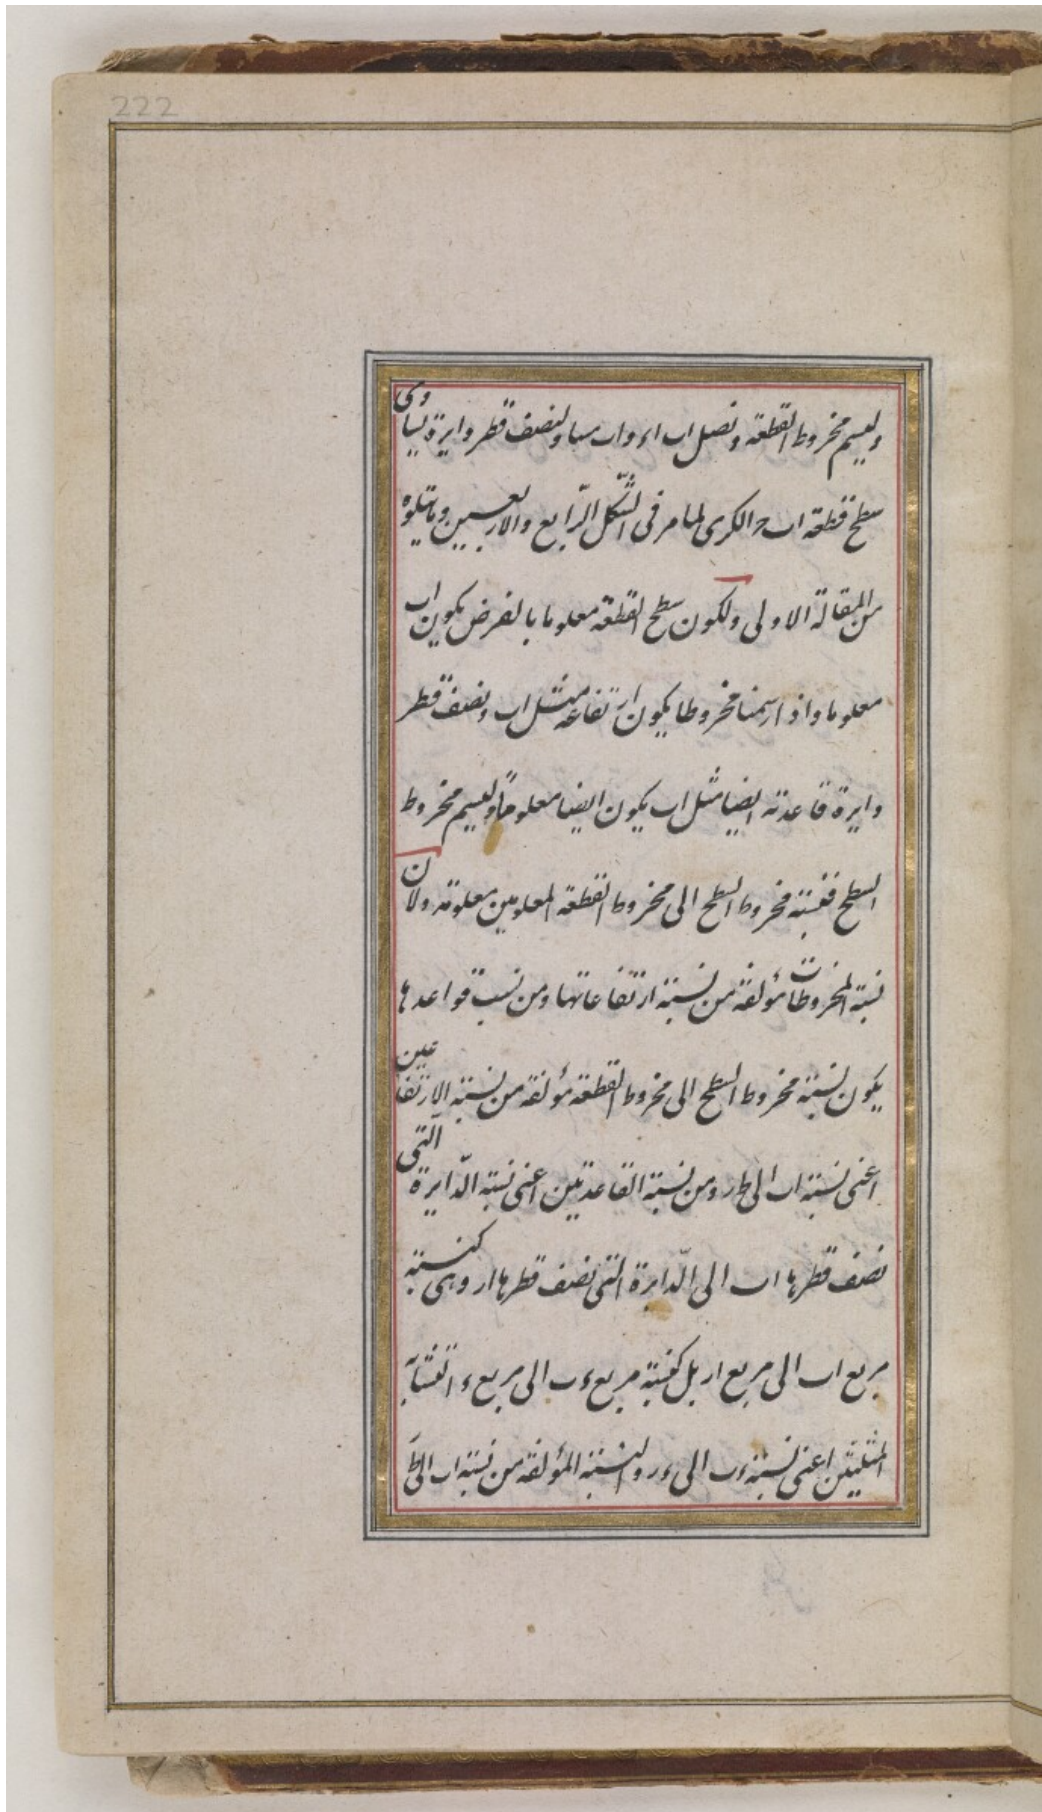 222
وليسم مخروط القطعة ونصل اب اء واب مساو لنصف قطر دايرة يساوى
سطح قطعة اب ح الكرى لما مر فى الشكل الرابع والاربعين وما يتلوه
من المقالة الاولى ولكون سطح القطعة معلوما بالفرض يكون اب
معلوما واذا رسمنا مخروطا يكون ارتفاعه مثل اب ونصف قطر
دايرة قاعدته ايضا مثل اب يكون ايضا معلوماً وليسم مخروط
السطح فنسبة مخروط السطح الى مخروط القطعة المعلومين معلومة ولان
نسبة المخروطات مؤلفة من نسبة ارتفاعاتها ومن نسب قواعدها
يكون نسبة مخروط السطح الى مخروط القطعة مؤلفة من نسبة الارتفاعين
اعنى نسبة اب الى ط ر ومن نسبة القاعدتين اعنى نسبة الدايرة التى
نصف قطرها اب الى الدايرة التى نصف قطرها ار وهى كنسبة
مربع اب الى مربع ار بل كنسبة مربع ء ب الى مربع ء ا لتشابه
المثلثين اعنى نسبة ء ب الى ء ر والنسبة المؤلفة من نسبة اب الى ط